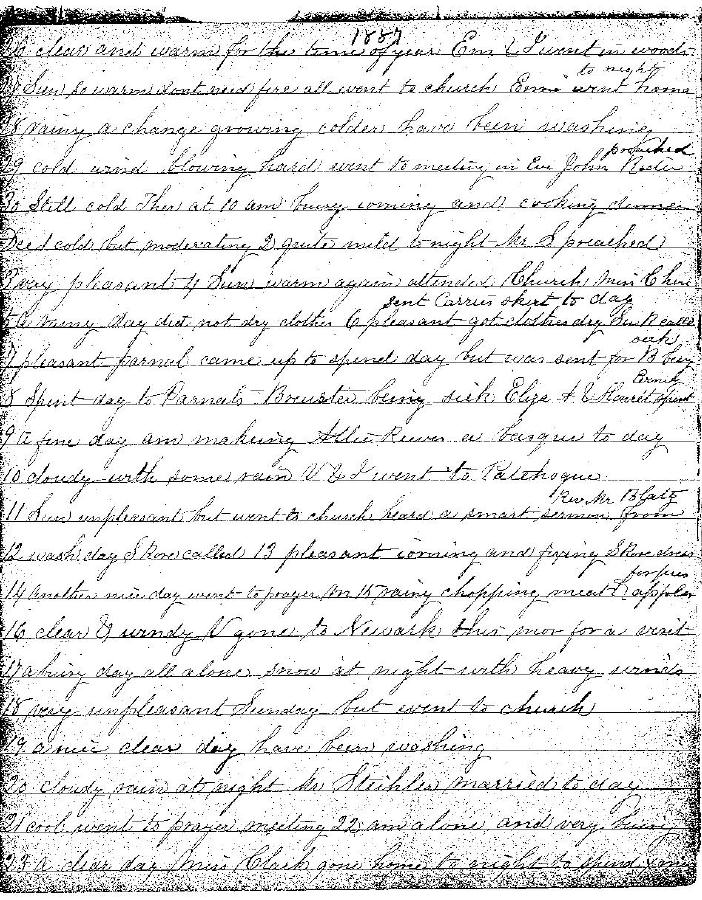 1887
26 clear and warm for the time of year Em & I went in woods
to night
27 Sun so warm dont need fire all went to church Emi went home
28 rainy a change growing colder have been washing
preached
29 cold wind blowing hard went to meeting in Eve John
30 Still cold Ther at 10 am busy ironing and cooking dinner
Dec 1 cold but moderating 2 quite mild to night Mr S preached
3 very pleasant 4 Sun warm again attended Church Miss C here
sent Carries skirt to day
5 a rainy day did not dry clothes 6 pleasant got clothes dry Sue R called
sick
7 pleasant Parnal came up to spend day but was sent for B being
8 Spent day to Parnals Brewster being sick Eliza & spent
9 a fine day am making Allie Reeves a basque to day
10 cloudy with some rain V & I went to Patchogue
Rev Mr
11 Sun unpleasant but went to church heard a smart sermon from
12 wash day S Rowe called 13 pleasant ironing and fixing S Rowe dress
for pies
14 another nice day went to prayer m 15 rainy chopping meat & apples
16 clear & windy V gone to Newark this mor for a visit
17 a busy day all alone snow at night with heavy winds
18 very unpleasant Sunday but went to church
19 a nice clear day have been washing
20 cloudy rain at night Mr Steihler married to day
21 cool went to prayer meeting 22 am alone and very busy
23 a clear day Miss Clark gone home to night to spend